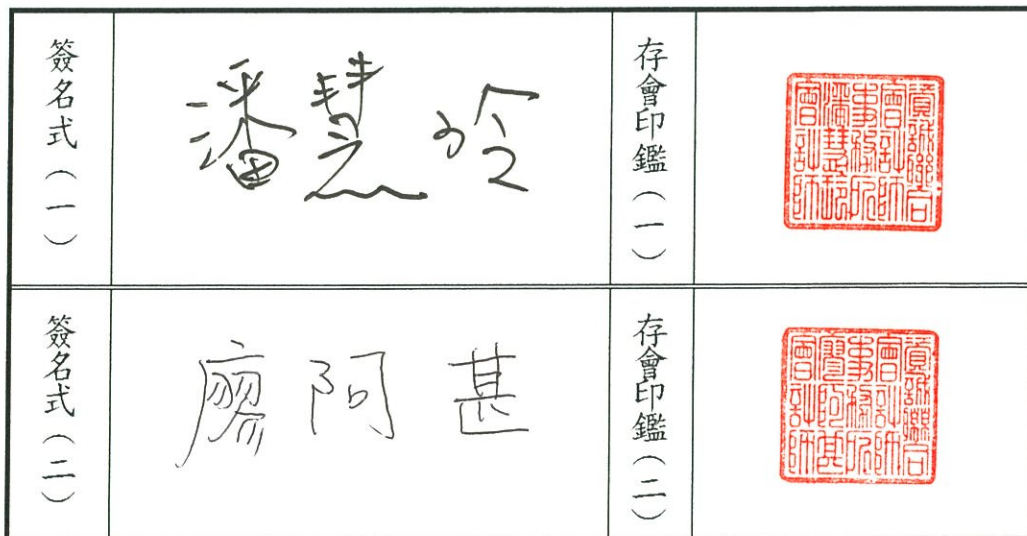 簽名式（一）
潘慧玲
存會印鑑（一）
資誠聯合
會計師
事務所
潘慧玲
會計師
簽名式（二）
廖阿甚
存會印鑑（二）
資誠聯合
會計師
事務所
廖阿甚
會計師